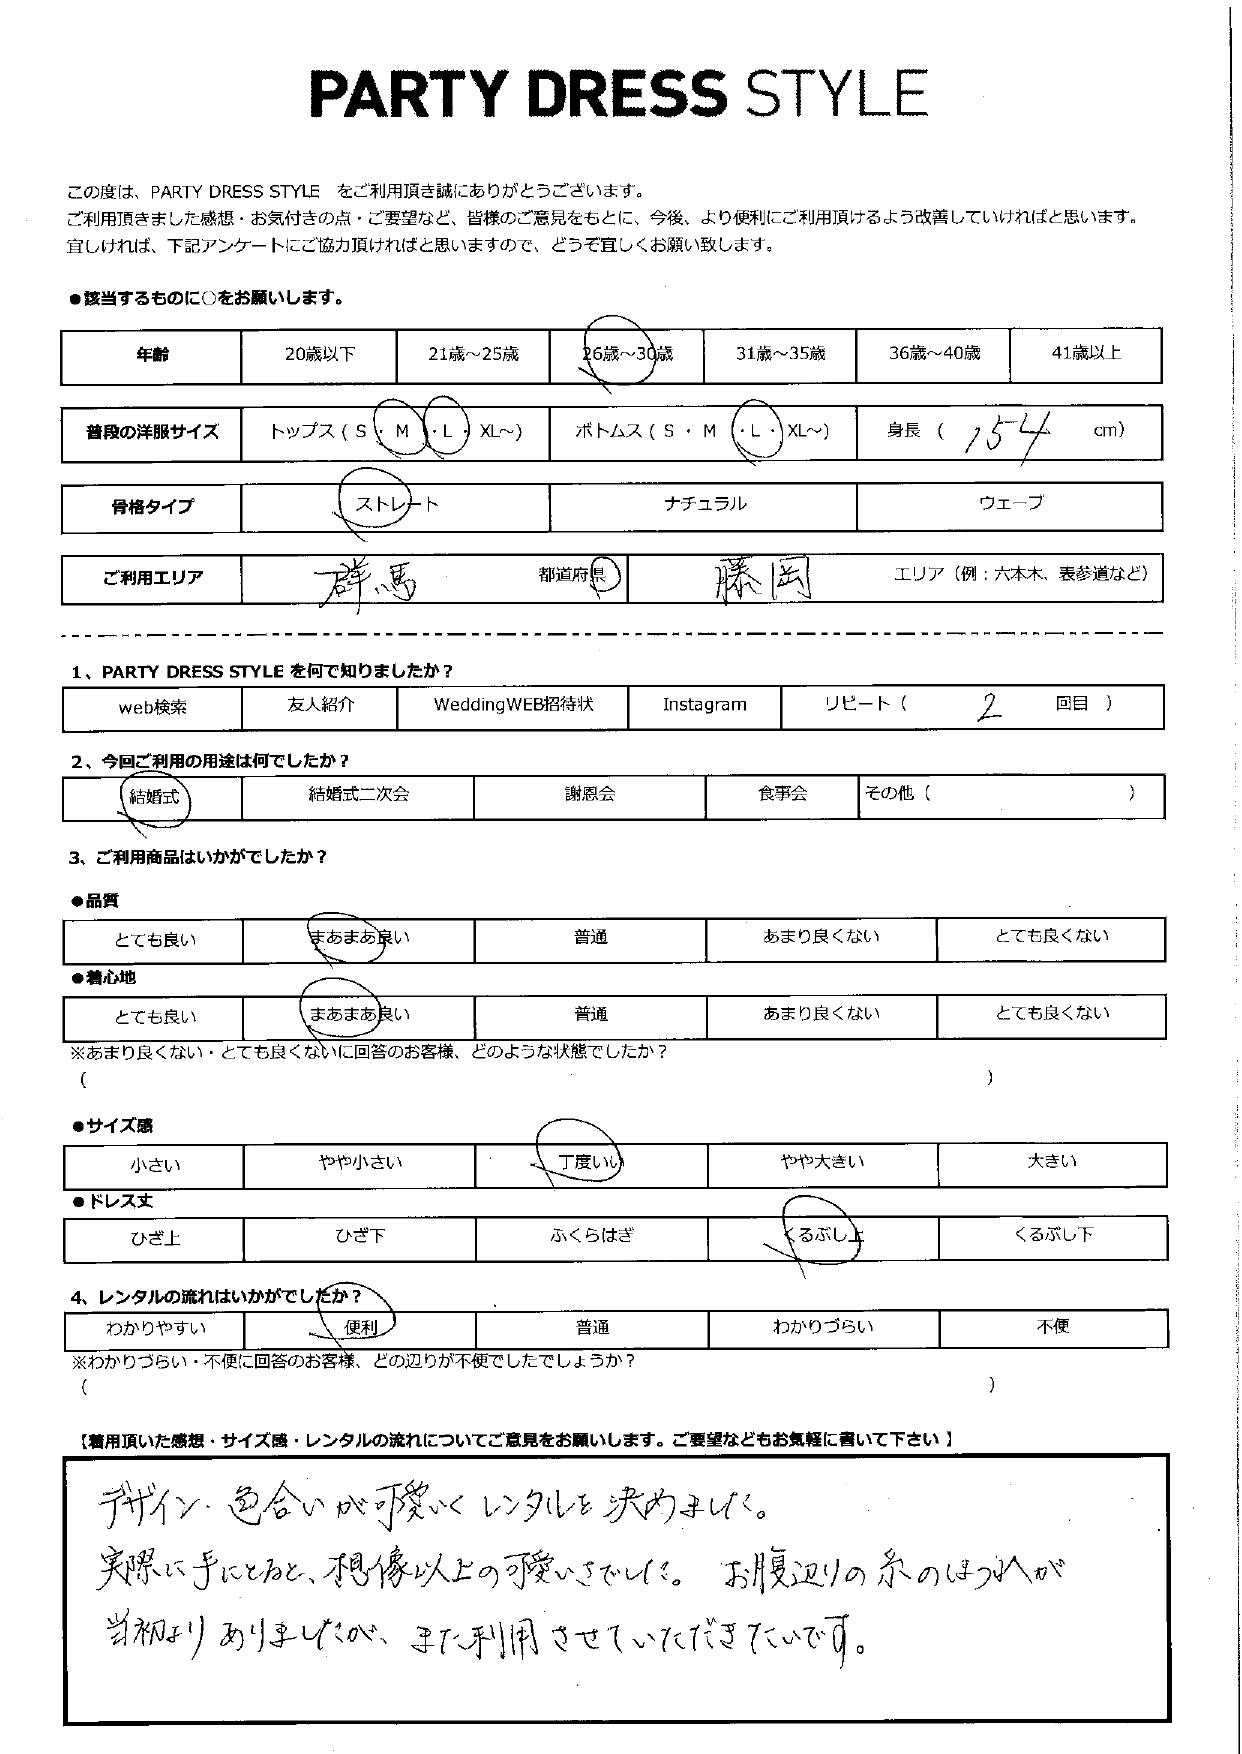 PARTY DRESS STYLE
この度は、PARTY DRESS STYLE をご利用頂き誠にありがとうございます。
ご利用頂きました感想・お気付きの点・ご要望など、皆様のご意見をもとに、今後、より便利にご利用頂けるよう改善していければと思います。
宜しければ、下記アンケートにご協力頂ければと思いますので、どうぞ宜しくお願い致します。
●該当するものに○をお願いします。
年齢 20歳以下 21歳～25歳 26歳～30歳 31歳～35歳 36歳～40歳 41歳以上
普段の洋服サイズ トップス ( S ・ M ・ L ・ XL～) ボトムス ( S ・ M ・ L ・ XL～) 身長 ( 154 cm)
骨格タイプ ストレート ナチュラル ウェーブ
ご利用エリア 群馬 都道府県 藤岡 エリア（例：六本木、表参道など）
1、PARTY DRESS STYLE を何で知りましたか？
web検索 友人紹介 WeddingWEB招待状 Instagram リピート（ 2 回目 ）
2、今回ご利用の用途は何でしたか？
結婚式 結婚式二次会 謝恩会 食事会 その他（ ）
3、ご利用商品はいかがでしたか？
●品質
とても良い まあまあ良い 普通 あまり良くない とても良くない
●着心地
とても良い まあまあ良い 普通 あまり良くない とても良くない
※あまり良くない・とても良くないに回答のお客様、どのような状態でしたか？
( )
●サイズ感
小さい やや小さい 丁度いい やや大きい 大きい
●ドレス丈
ひざ上 ひざ下 ふくらはぎ くるぶし上 くるぶし下
4、レンタルの流れはいかがでしたか？
わかりやすい 便利 普通 わかりづらい 不便
※わかりづらい・不便に回答のお客様、どの辺りが不便でしたでしょうか？
( )
【着用頂いた感想・サイズ感・レンタルの流れについてご意見をお願いします。ご要望などもお気軽に書いて下さい 】
デザイン・色合いが可愛いくレンタルを決めました。
実際に手にとると、想像以上の可愛いさでした。 お腹辺りの糸のほつれが
当初よりありましたが、また利用させていただきたいです。